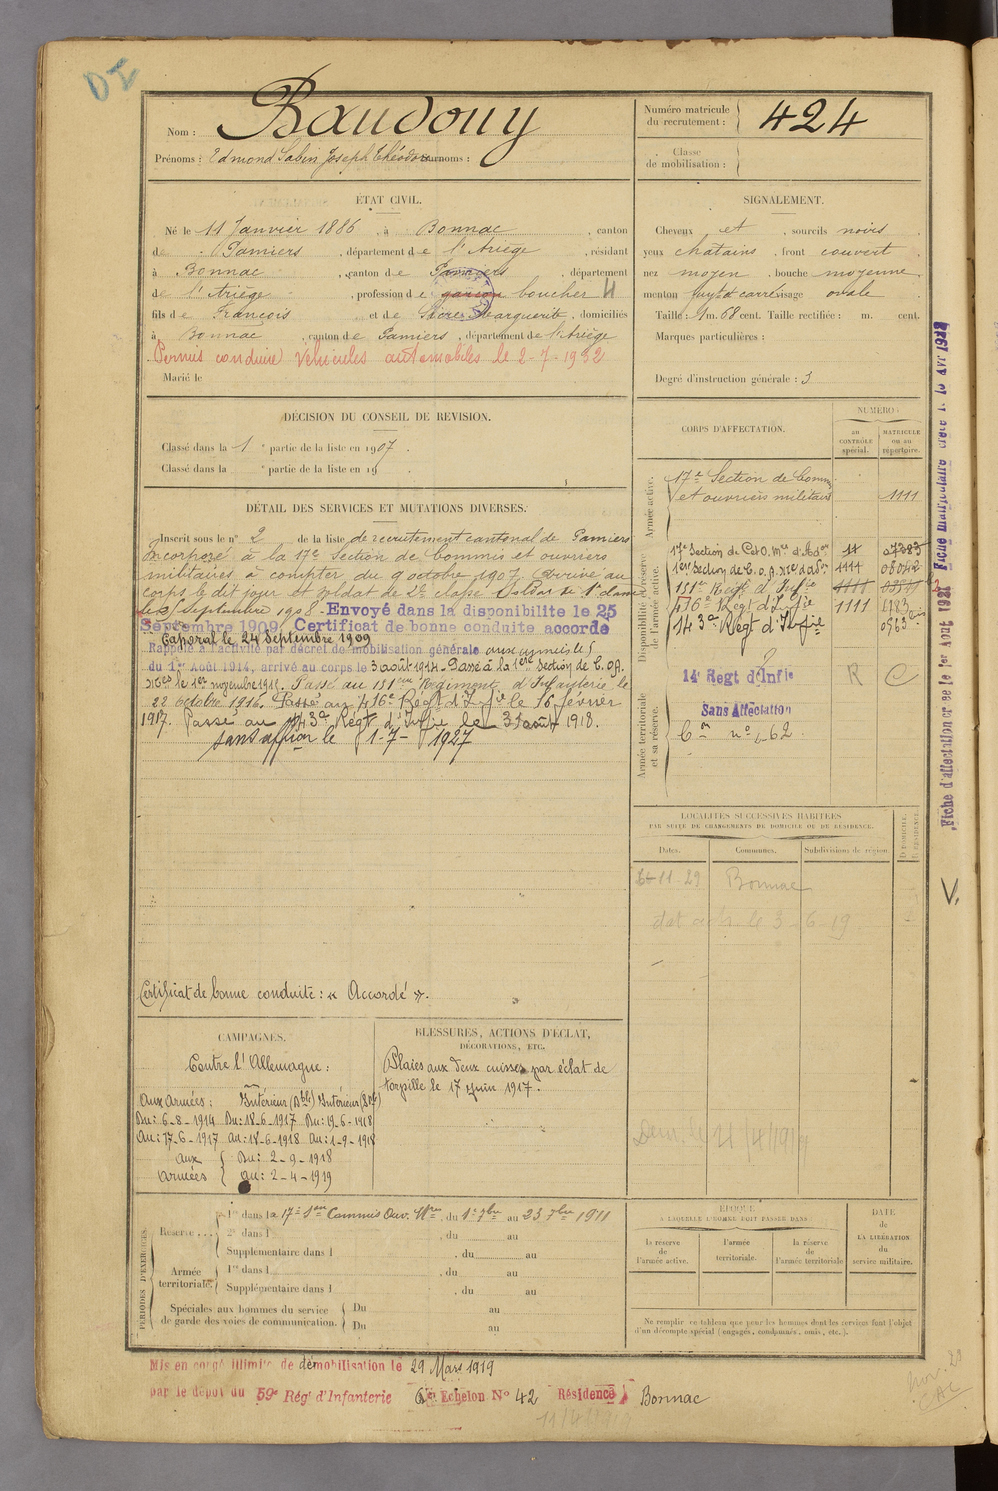 DI
Nom : Baudouy
Prénoms : Edmond Sabin Joseph Théodore Surnoms :
Numéro matricule du recrutement : 424
Classe de mobilisation :
ÉTAT CIVIL.
Né le 11 Janvier 1886, à Bonnac, canton
de Pamiers, département de l'Ariège, résidant
à Bonnac, canton de Pamiers, département
de l'Ariège, profession de garçon boucher H
fils de François et de Marguerite, domiciliés
à Bonnac, canton de Pamiers, département de l'Ariège
Permis conduire Véhicules automobiles le 2-7-1932
Marié le
SIGNALEMENT.
Cheveux et, sourcils noirs
yeux chatains, front couvert
nez moyen, bouche moyenne
menton visage ovale
Taille : 1 m. 68 cent. Taille rectifiée : m. cent.
Marques particulières :
Degré d'instruction générale : 3
DÉCISION DU CONSEIL DE REVISION.
Classé dans la 1e partie de la liste en 1907.
Classé dans la e partie de la liste en 19 .
DÉTAIL DES SERVICES ET MUTATIONS DIVERSES.
Inscrit sous le n° 2 de la liste de recrutement cantonal de Pamiers
Incorporé à la 17e Section de Commis et ouvriers
militaires à compter du 9 octobre 1907. Arrivé au
corps le dit jour et soldat de 2e classe. Soldat de 1e classe
le Septembre 1908. Envoyé dans la disponibilité le 25
Septembre 1909. Certificat de bonne conduite accordé
Caporal le 24 Septembre 1909
Rappelé à l'activité par décret de mobilisation générale
du 1er Août 1914, arrivé au corps le 3 août 1914. Passé à la 1ère Section de C.O.A.
le 1er novembre 1915. Passé au 151eme Régiment d'Infanterie le
22 octobre 1916. Passé au 416e Régt d'Infie le 16 février
1917. Passé au 143e Régt d'Infie le 31 août 1918.
sans affion le 1-7-1927
Certificat de bonne conduite : « Accordé ».
CORPS D'AFFECTATION.
NUMÉROS
au CONTRÔLE spécial.
MATRICULE ou au répertoire.
Armée active.
17e Section de Commis
et ouvriers militaires 1111
Disponibilité et réserve de l'armée active.
17e Section de C et O. Mres d'Adon 11 07385
1ère Section de C.O.A. 1111 08042
151e Régt d'Infie 1111
416e Regt d'Infie 1111 4783
143e Régt d'Infie 0963 bis
Armée territoriale et sa réserve.
14e Regt d'Infie R C
Sans Affectation
Con n° 62
LOCALITÉS SUCCESSIVES HABITÉES
PAR SUITE DE CHANGEMENTS DE DOMICILE OU DE RÉSIDENCE.
Dates. Communes. Subdivisions de région. D. DOMICILE. R. RÉSIDENCE.
11-29 Bonnac
CAMPAGNES.
Contre l'Allemagne :
Aux Armées : Intérieur Intérieur
Du : 6-8-1914 Du : 18-6-1917 Du : 19-6-1918
Au : 17-6-1917 au : 18-6-1918 Au : 1-9-1918
aux armées { Du : 2-9-1918
au : 2-4-1919
BLESSURES, ACTIONS D'ÉCLAT,
DÉCORATIONS, ETC.
Plaies aux deux cuisses par éclat de
torpille le 17 Juin 1917.
PÉRIODES D'EXERCICES
Réserve... 1re dans la 17e Son Commis Ouv. Mres, du 1er 7bre au 23 7bre 1911
2e dans l , du au
Supplémentaire dans l , du au
Armée territoriale. 1re dans l , du au
Supplémentaire dans l , du au
Spéciales aux hommes du service
de garde des voies de communication. Du au
Du au
ÉPOQUE
À LAQUELLE L'HOMME DOIT PASSER DANS
la réserve de l'armée active.
l'armée territoriale.
la réserve de l'armée territoriale
DATE de LA LIBÉRATION du service militaire.
Ne remplir ce tableau que pour les hommes dont les services font l'objet
d'un décompte spécial (engagés, condamnés, omis, etc.).
Mis en congé illimité de démobilisation le 29 Mars 1919
par le dépôt du 59e Rég' d'Infanterie Echelon N° 42 Résidence à Bonnac
Fiche d'affectation créée le 1er Août 1928
V.